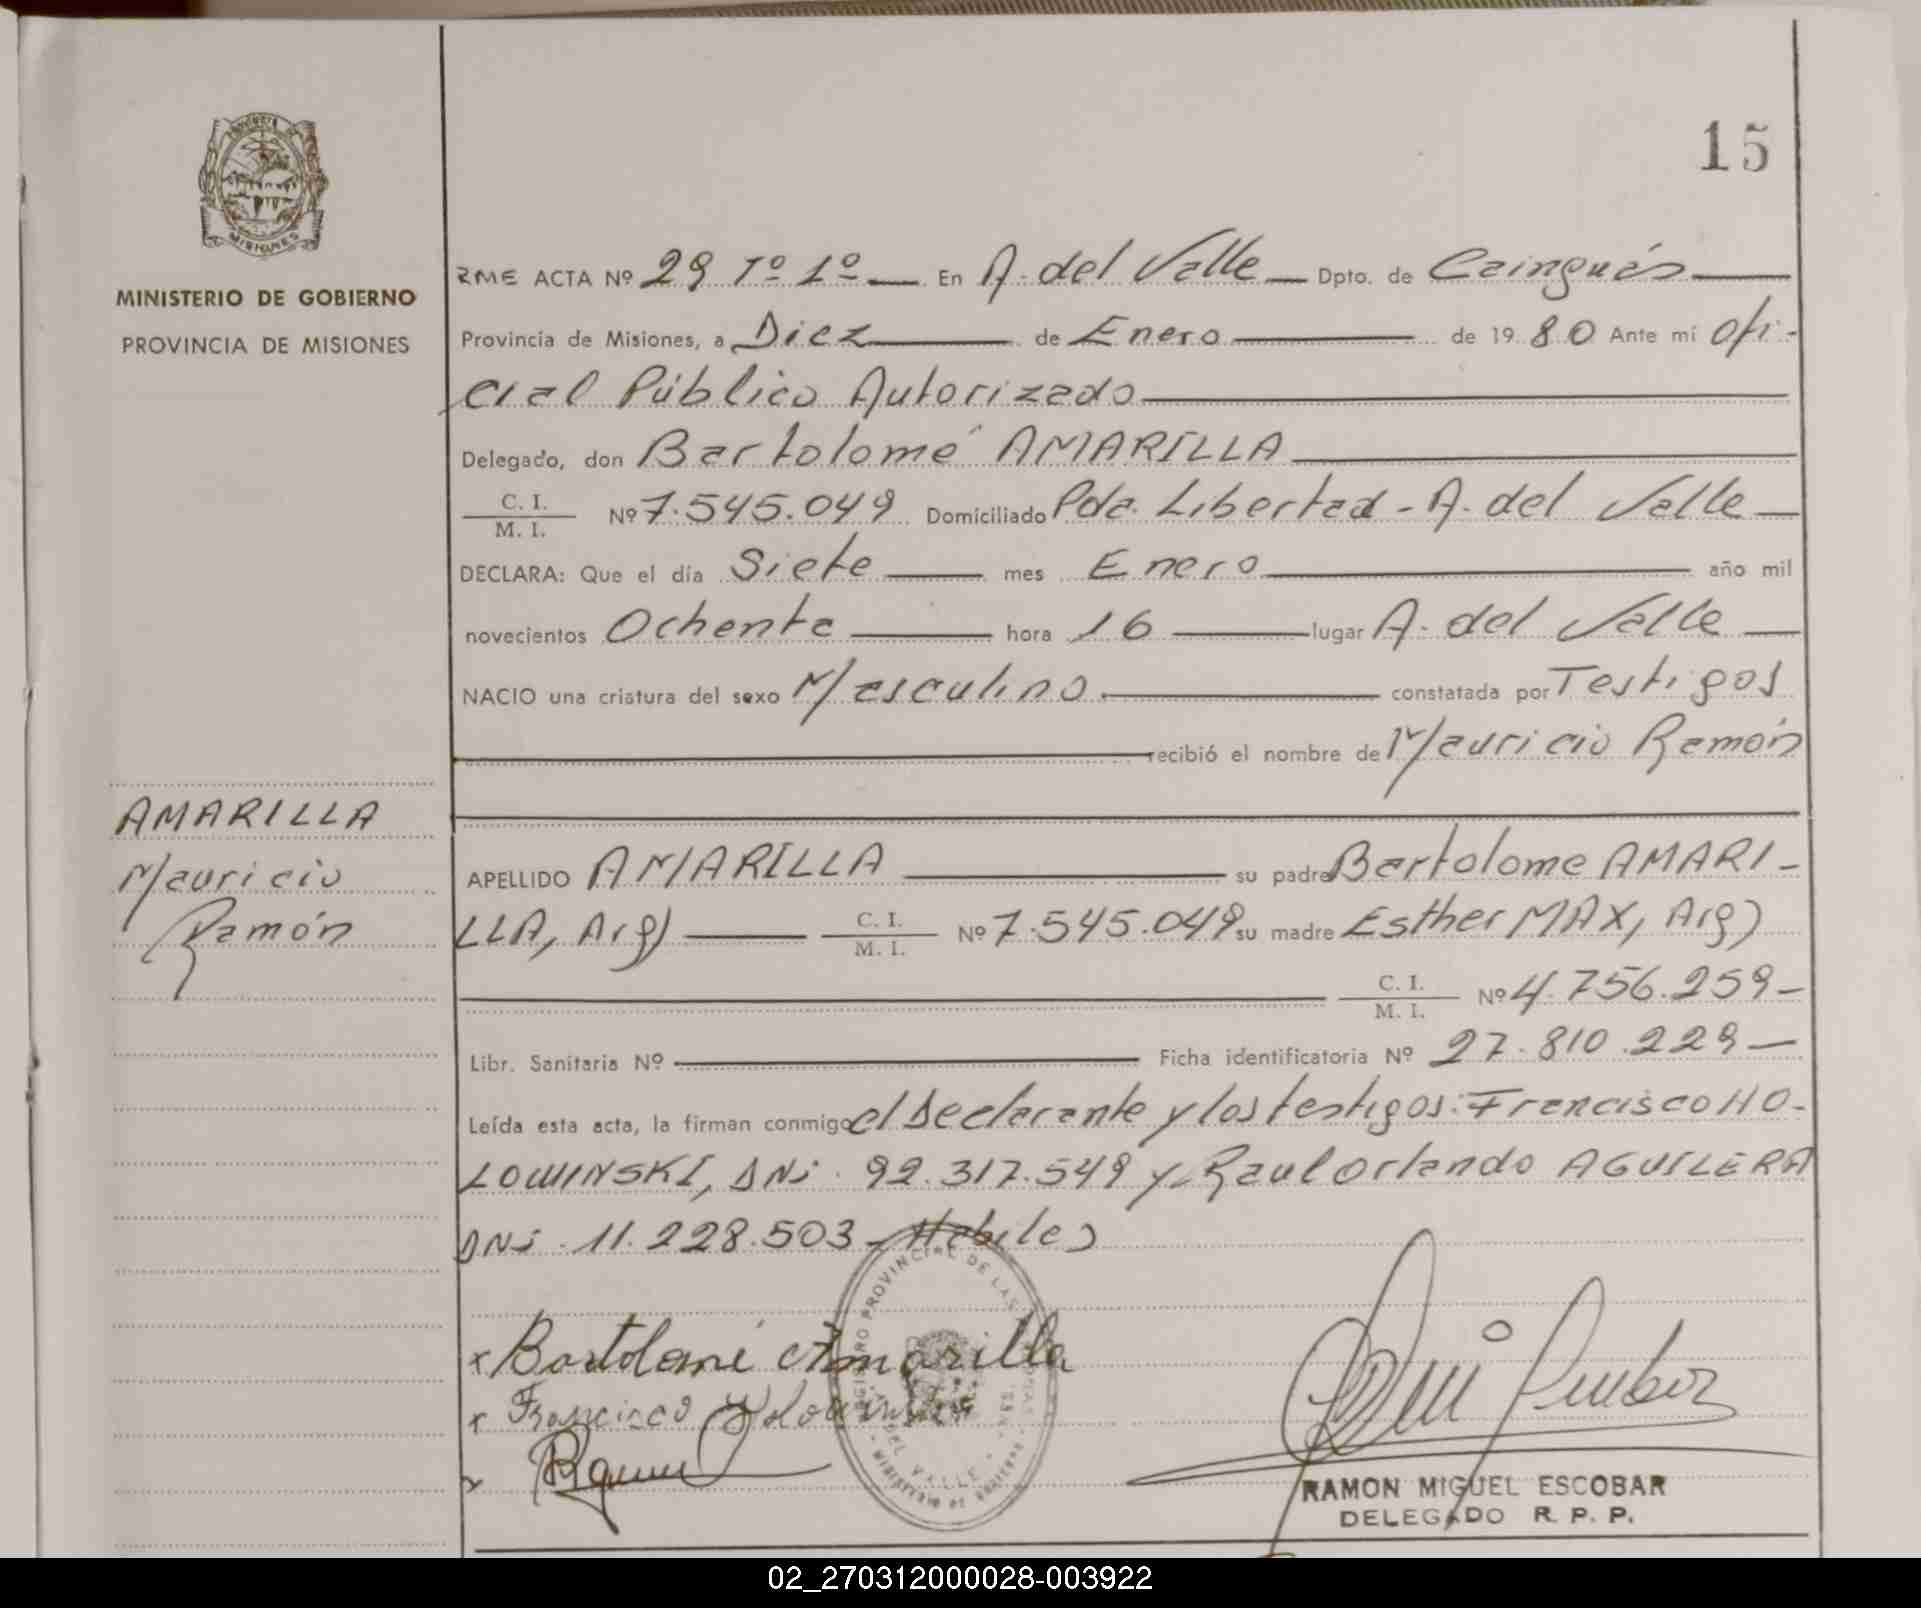 15
PROVINCIA DE
MISIONES
MINISTERIO DE GOBIERNO
PROVINCIA DE MISIONES
ACTA Nº 29 Tº 1º — En A. del Valle — Dpto. de Cainguás —
Provincia de Misiones, a Diez — de Enero — de 1980 Ante mí Ofi-
cial Público Autorizado —
Delegado, don Bartolomé AMARILLA —
C. I.
M. I. Nº 7.545.049 Domiciliado Pda. Libertad - A. del Valle —
DECLARA: Que el día Siete — mes Enero — año mil
novecientos Ochenta — hora 16 — lugar A. del Valle —
NACIO una criatura del sexo Masculino — constatada por Testigos
— recibió el nombre de Mauricio Ramón
AMARILLA
Mauricio
Ramón
APELLIDO AMARILLA — su padre Bartolome AMARI-
LLA, Arg) — C. I.
M. I. Nº 7.545.049 su madre Esther MAX, Arg)
— C. I.
M. I. Nº 4.756.259 —
Libr. Sanitaria Nº — Ficha identificatoria Nº 27.810.229 —
Leída esta acta, la firman conmigo el Declarante y los testigos: Francisco HO-
LOWINSKI, DNi. 92.317.549 y Raul Orlando AGUILERA
DNi. 11.228.503 - Habiles
x Bartolomé Amarilla
x Francisco Holowinski
REGISTRO PROVINCIAL DE LAS PERSONAS
DEL VALLE
MINISTERIO DE GOBIERNO
RAMON MIGUEL ESCOBAR
DELEGADO R. P. P.
02_270312000028-003922